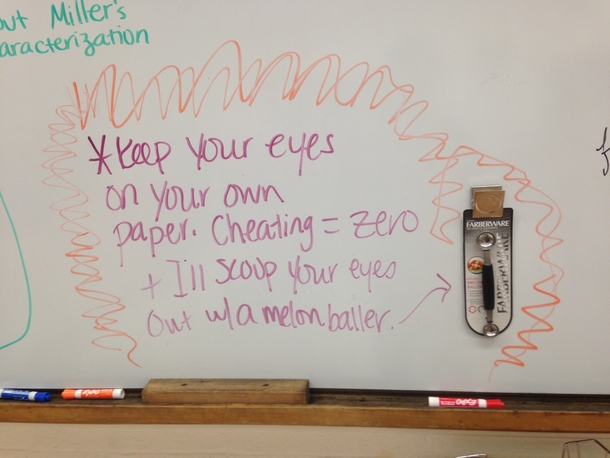 out Miller's
aracterization
*Keep your eyes
on your own
paper. Cheating = zero
+ I'll scoop your eyes
out w/a melon baller.
FARBERWARE
FARBERWARE
EXPO
EXPO